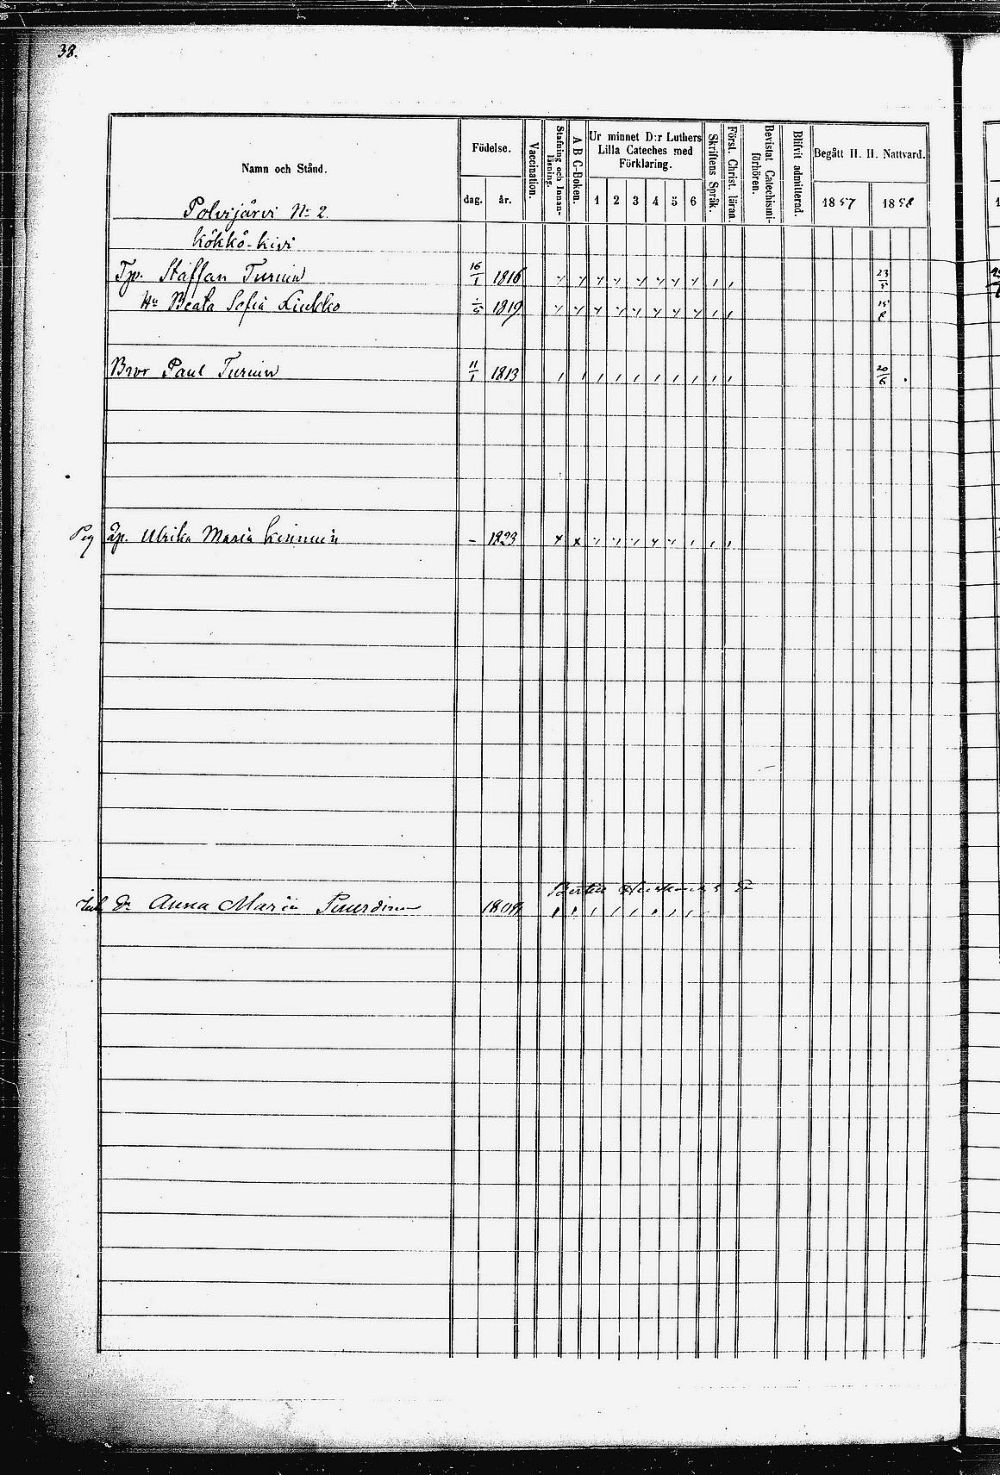 38.
Namn och Stånd.
Födelse.
dag. år.
Vaccination.
Stafning och Innan-läsning.
A B C-Boken.
Ur minnet D:r Luthers
Lilla Cateches med
Förklaring.
1 2 3 4 5 6
Skriftens Språk.
Först. Christ. läran.
Bevistat Catechismi-förhören.
Blifvit admitterad.
Begått H. H. Nattvard.
1857 1858
Polvijärvi No 2
Kökkö-kivi
Staffan Turuin 16/1 1816 23/5
Hu Beata Sofia 1819 15/8
Bror Paul Turuin 11/1 1813 20/6
Pig Ulrika Maria Kinnuin - 1823
Anna Maria 1809